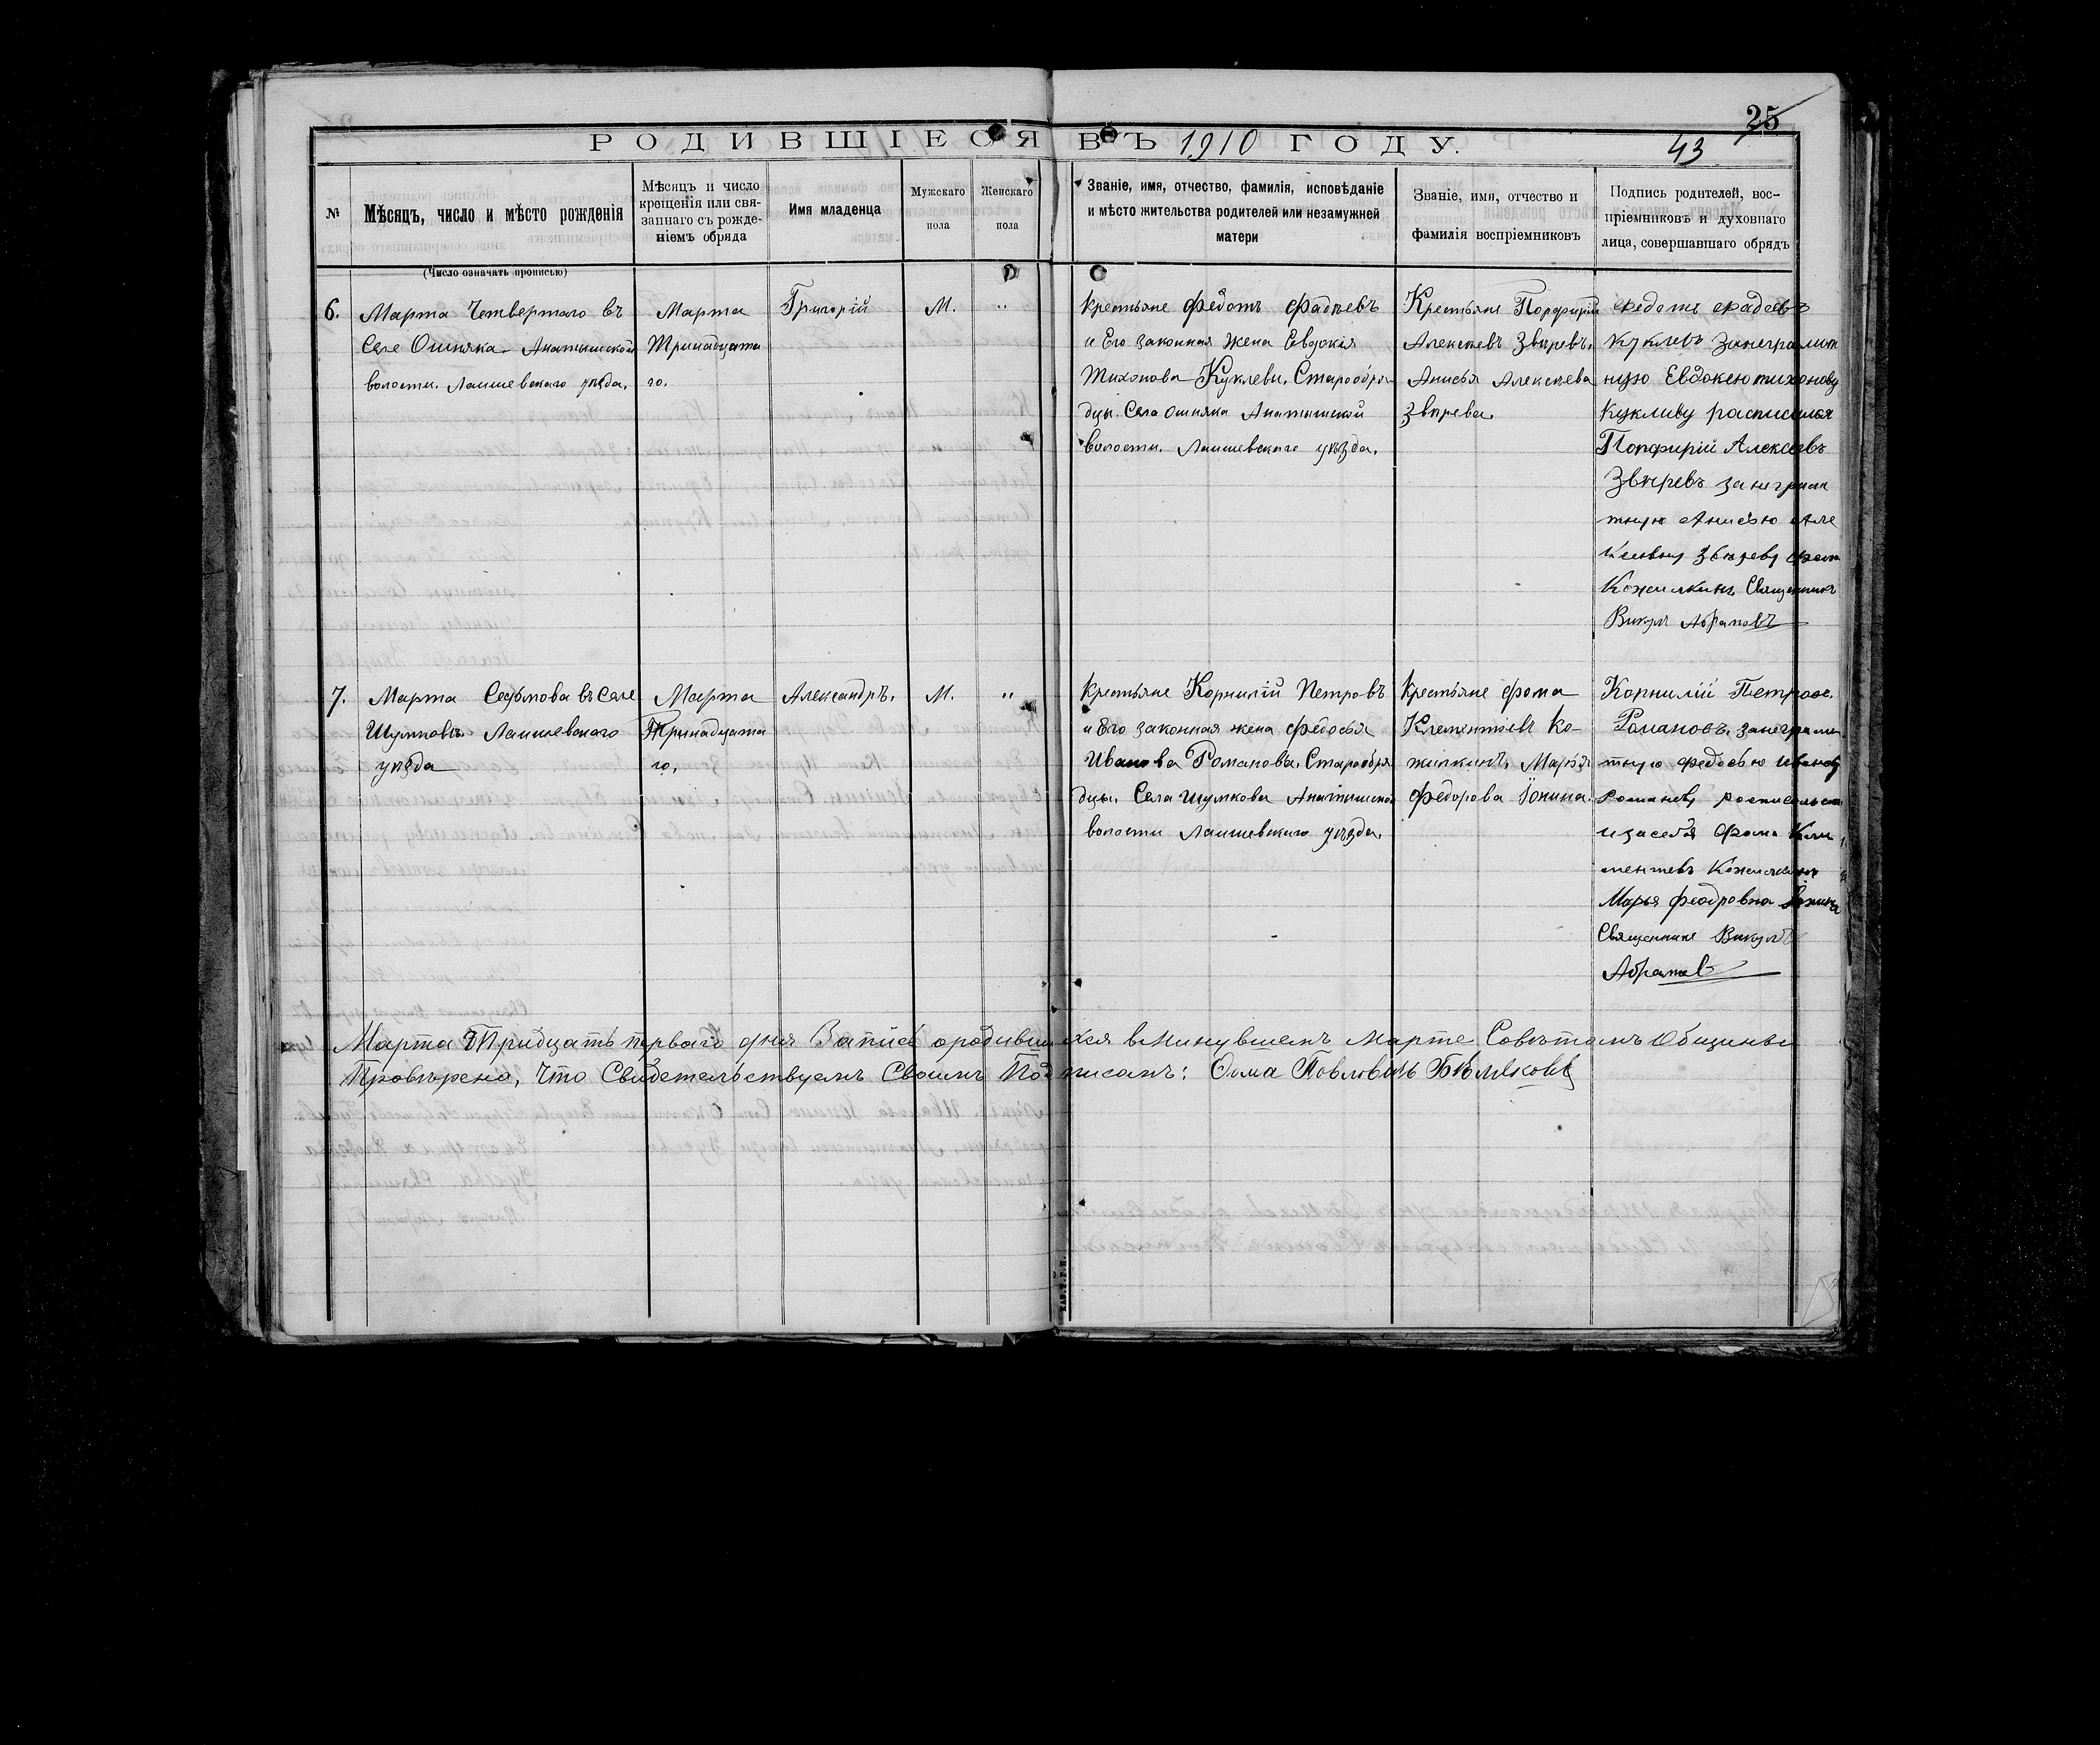 25
РОДИВШІЕСЯ ВЪ 1910 ГОДУ.
43
№
Мѣсяцъ, число и мѣсто рожденія
(Число означать прописью)
Мѣсяцъ и число
крещенія или свя-
заннаго съ рожде-
ніемъ обряда
Имя младенца
Мужскаго
пола
Женскаго
пола
Званіе, имя, отчество, фамилія, исповѣданіе
и мѣсто жительства родителей или незамужней
матери
Званіе, имя, отчество и
фамилія воспріемниковъ
Подпись родителей, вос-
пріемниковъ и духовнаго
лица, совершавшаго обрядъ
6.
Марта Четвертаго въ
Селе Ошняка Анатышской
волости. Лаишевскаго уѣзда.
Марта
Тринадцата
го.
Григорій
М.
"
Крестьяне Федотъ Фадѣевъ
и Его законная жена Евдокія
Тихонова Куклевы. Старообря-
дцы. Села Ошняка Анатышской
волости. Лаишевскаго уѣзда.
Крестьяне Порфирій
Алексѣевъ Звѣревъ.
Анисья Алексѣева
Звѣрева.
Федотъ Фадеевъ
Куклевъ занеграмот
ную Евдокею тихонову
Кукливу расписался
Попфирій Алексеевъ
Звѣревъ занеграм
тную Анисью Але
ксевну Звѣреву Фома
Кожилкинъ Священникъ
Викулъ Абрамовъ
7.
Марта Седьмова въ Селе
Шумковѣ Лаишевскаго
уѣзда
Марта
Тринадцата
го.
Александръ.
М.
"
Крестьяне Корнилій Петровъ
и Его законная жена Федосья
Иванова Романова. Старообря
дцы. Села Шумкова Анатышской
волости Лаишевскаго уѣзда.
Крестьяне Фома
Клементіевъ Ко-
жилкинъ. Марья
Федорова Іонина.
Корнилій Петров.
Романовъ. занеграмо
тную Федосью Иванову
Романову росписался
изасебя Фома Кли
ментевъ Кожилкинъ
Марья Феодровна Іонина
Священникъ Викулъ
Абрамов
Марта Тридцать перваго дня Запись ородившихся вминувшемъ Марте Совѣтомъ Общины
Провѣрено, Что Свидетельствуемъ Своимъ Подписамъ: Фома Павловичь Бѣляковъ
КАЗ. Т. Г. П.